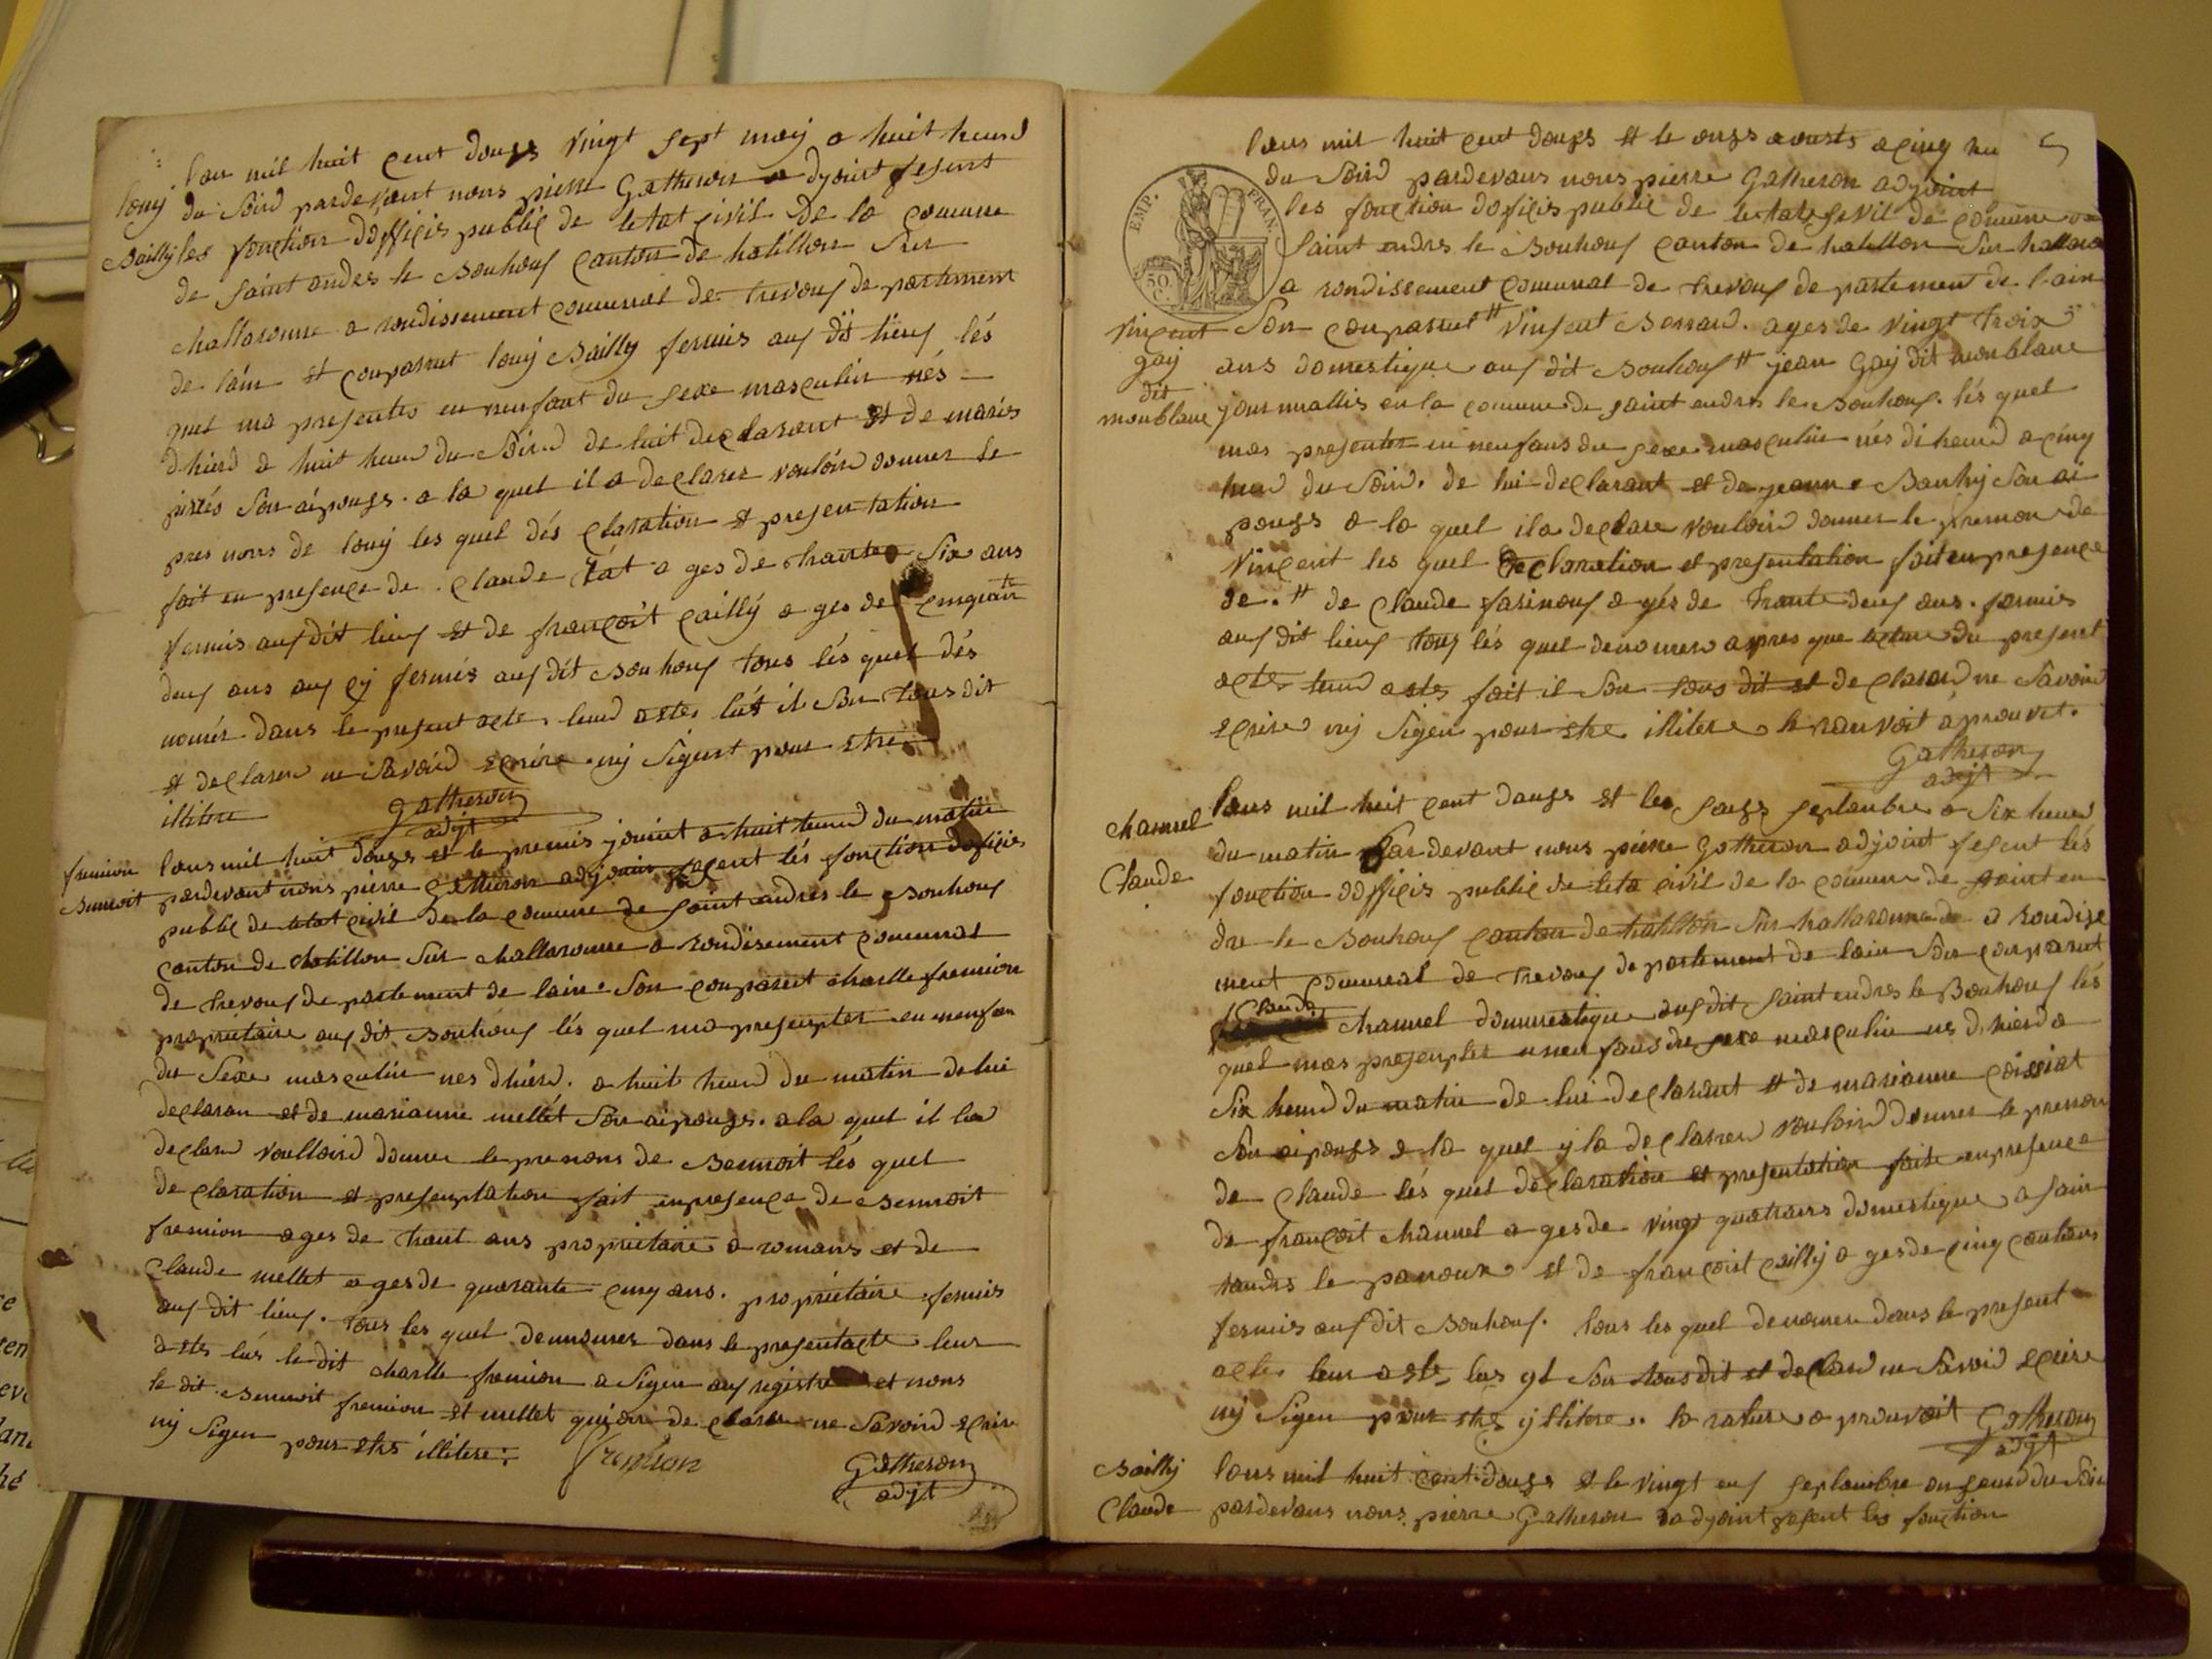 lan mil huit cent douze vingt sept may a huit heurd
louy du Soird pardevant nous pierre Gatheron adjoint fesent
Bailly les fonction dofficis public de letat civil de la comune
de saint andes le Bouhouf canton de hatillon sur
challaronne a rondissement comunal de trevouf de partement
de lain et conparut louy Bailly fermis auf dit lieuf lés
quel ma presentés eu neufant du sexe masculin nés
dhierd a huit heurd du Soird de luit declarant et de maris
son aipouze. a la quel il a declarer vouloird donner le
pres noms de louy les quel dés claration et presentation
fait en presence de claude tat a ges de trante Six ans
fermis auf dit lieuf et de françoit cailly a ges de cinquante
deuf ans auf cy fermis auf dit Bouhouf tous lés quel dés
només dans le present acte, leurd actes lus il Son tous dit
et declarer ne Savoird ecrire ny Sigent pour etre
illitere
Gatheron
adjt
fremion lans mil huit douze et le premis jouint a huit heurd du matin
Bennoit pardevant nous pierre Gatheron adjoint fesent lés fonction dofficis
public de letat civil de la comune de saint andres le Bouhouf
canton de chatillon sur challaronne a rondisement comunal
de trevouf de partement de lain. Son conparut charlle fremion
proprietaire auf dit Bouhouf lés quel ma presempter eu neufan
du Sexe masculin nes dhierd. a huit heurd du matin de lui
declaran et de marianne mellét Son aipouze. a la quel il la
declard voulloird donner le prenons de Bennoit lés quel
de claration et presemptation fait en presence de Bennoit
fremion a ges de trant ans proprietaire a romans et de
Claude mellet a ges de quarante cinq ans. proprietaire fermis
auf dit lieuf. tous les quel denomner dans le present acte leur
actes lus le dit charlle fremion a Signe auf registre et nons
le dit Bennoit fremion et mellet qui on de clarer ne Savoird ecrire
ny Signer pour etres illitere.
fremion
Gatheron
adjt
5
EMP. FRAN.
50 C.
lans mil huit cent douze et le onze aouste a cinq heu
du Soird pardevans nous pierre Gatheron adjoint
les fonction doficis public de letate sevil de comune
Saint andres le Bouhouf canton de hatillon sur hallaro
a rondissement comunal de trevouf de partement de lain
Vincent Son conparut # Vinsent Bernard. ages de vingt troix
Gay ans domestique auf dit Bouhouf # jean Gay dit monblanc
dit
monblanc journallis en la comune de saint andres le Bouhouf. lés quel
mas presenter eu neufans du sexe masculin nés di heurd a cinq
heurd du Soird. de lui declarant et de jeanne Son ai
pouze a la quel il a declare vouloird donner le prenon de
Vincent les quel declaration et presentation fait en presence
de. # de Claude farinouf a gés de trante deuf ans. fermis
auf dit lieuf tous lés quel denomer apres que lecture du present
acte leurd actes fait il Son tous dit et declarerd ne Savoird
ecrire ny Signer pour etre illitere le ranvoit aprouvet.
Gatheron
adjt
Chanuel lans mil huit cent douze et les saize septanbre a Six heurd
Claude du matin Pardevant nous pierre Gatheron adjoint fesent lés
fonction dofficis public de leta civil de la comune de saint en
dre le Bouhouf canton de hatillon sur hallaronne a rondise
ment comunal de trevouf de partement de lain Son conparut
Claude chanuel domnestique auf dit saint endres le Bouhouf lés
quel mas presempter eneu fans du sexe masculin nes dhierd a
Six heurd du matin de lui declarant et de marianne
Son aipouze a la quel y la declarer vouloird donner le prenon
de Claude lés quel déclaration et presentation faite en presence
de françoit chanuel a ges de vingt quatrans domestique a sain
tandres le panoux et de françoit cailly a ges de cinq cantans
fermis auf dit Bouhouf. tous les quel denomer dans le present
acte leur acte, lus yl Son tous dit et declard ne Savoird ecrire
ny Signer pour etre yllitere. la rature a prouvoit Gatheron
adjt
Bailly lans mil huit cent douze et le vingt euf septanbre du Soir
Claude pardevans nous pierre Gatheron adjoint fesent les fonction